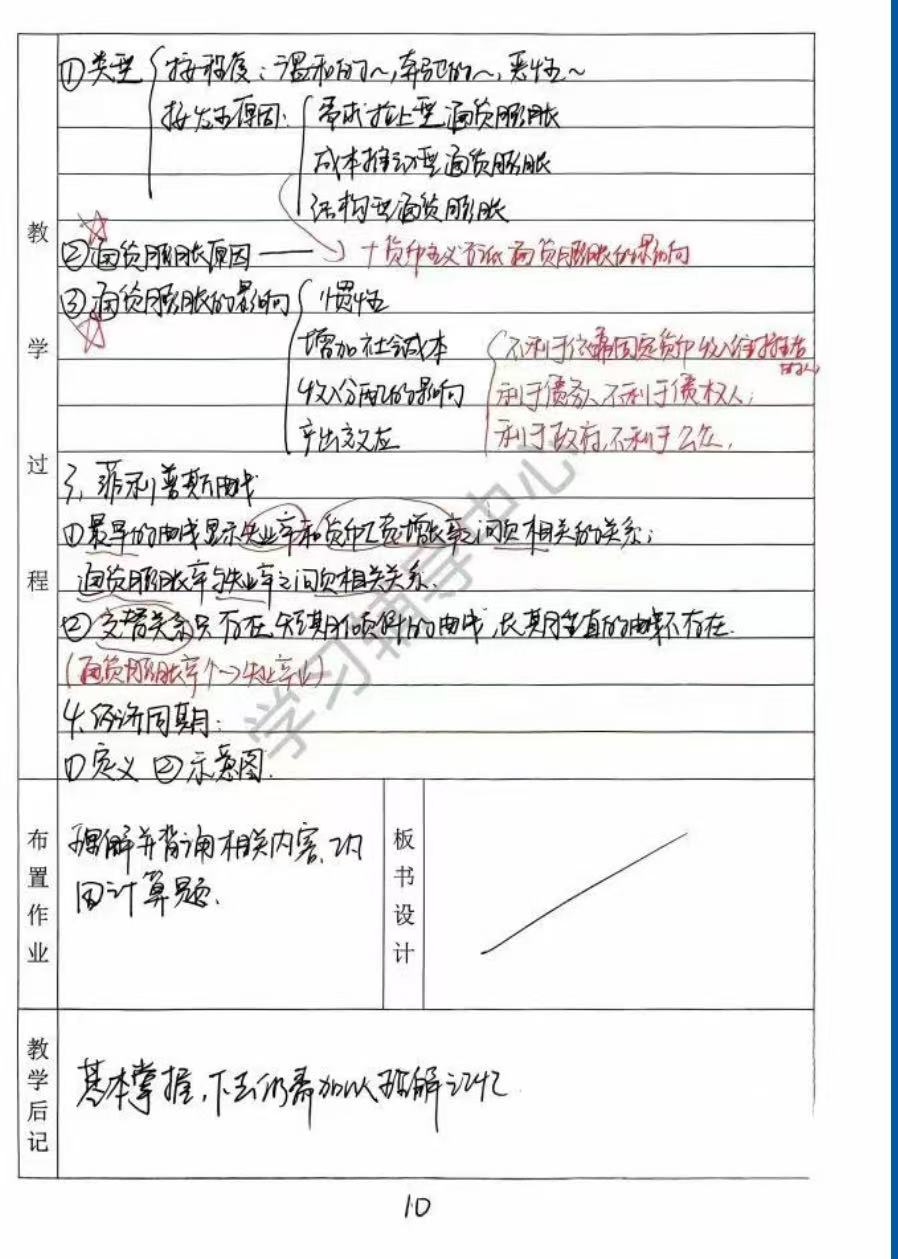 教学过程
①类型 按程度：温和的～，奔驰的～，恶性～
按发生原因：需求拉上型通货膨胀
成本推动型通货膨胀
结构型通货膨胀
②通货膨胀原因—— +货币主义 通货膨胀的影响
③通货膨胀的影响 惯性
增加社会成本 不利于依靠固定货币收入维持生活的人
收入分配的影响 利于债务人不利于债权人；
产出效应 利于政府，不利于公众，
3、菲利普斯曲线
①最早的曲线显示失业率和货币工资增长率之间负相关的关系；
通货膨胀率与失业率之间负相关关系.
②交替关系只存在短期 的曲线，长期垂直的曲线不存在.
(通货膨胀率个→失业率少)
4、经济周期：
①定义 ②示意图.
布置作业
理解并背诵相关内容，
计算题.
板书设计
教学后记
基本掌握，下去仍需加以理解记忆
10
学习辅导中心